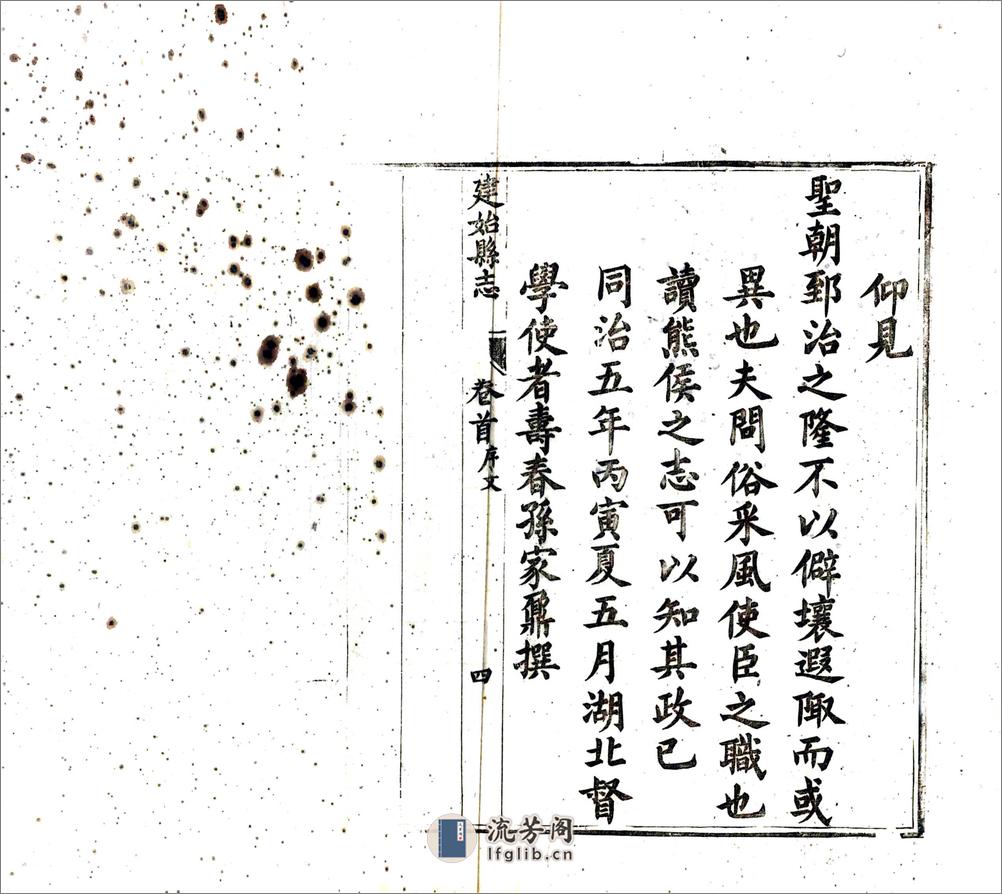 仰見
聖朝郅治之隆不以僻壤遐陬而或
異也夫問俗采風使臣之職也
讀熊侯之志可以知其政已
同治五年丙寅夏五月湖北督
學使者壽春孫家鼐撰
建始縣志 卷首序文 四
流芳阁
lfglib.cn